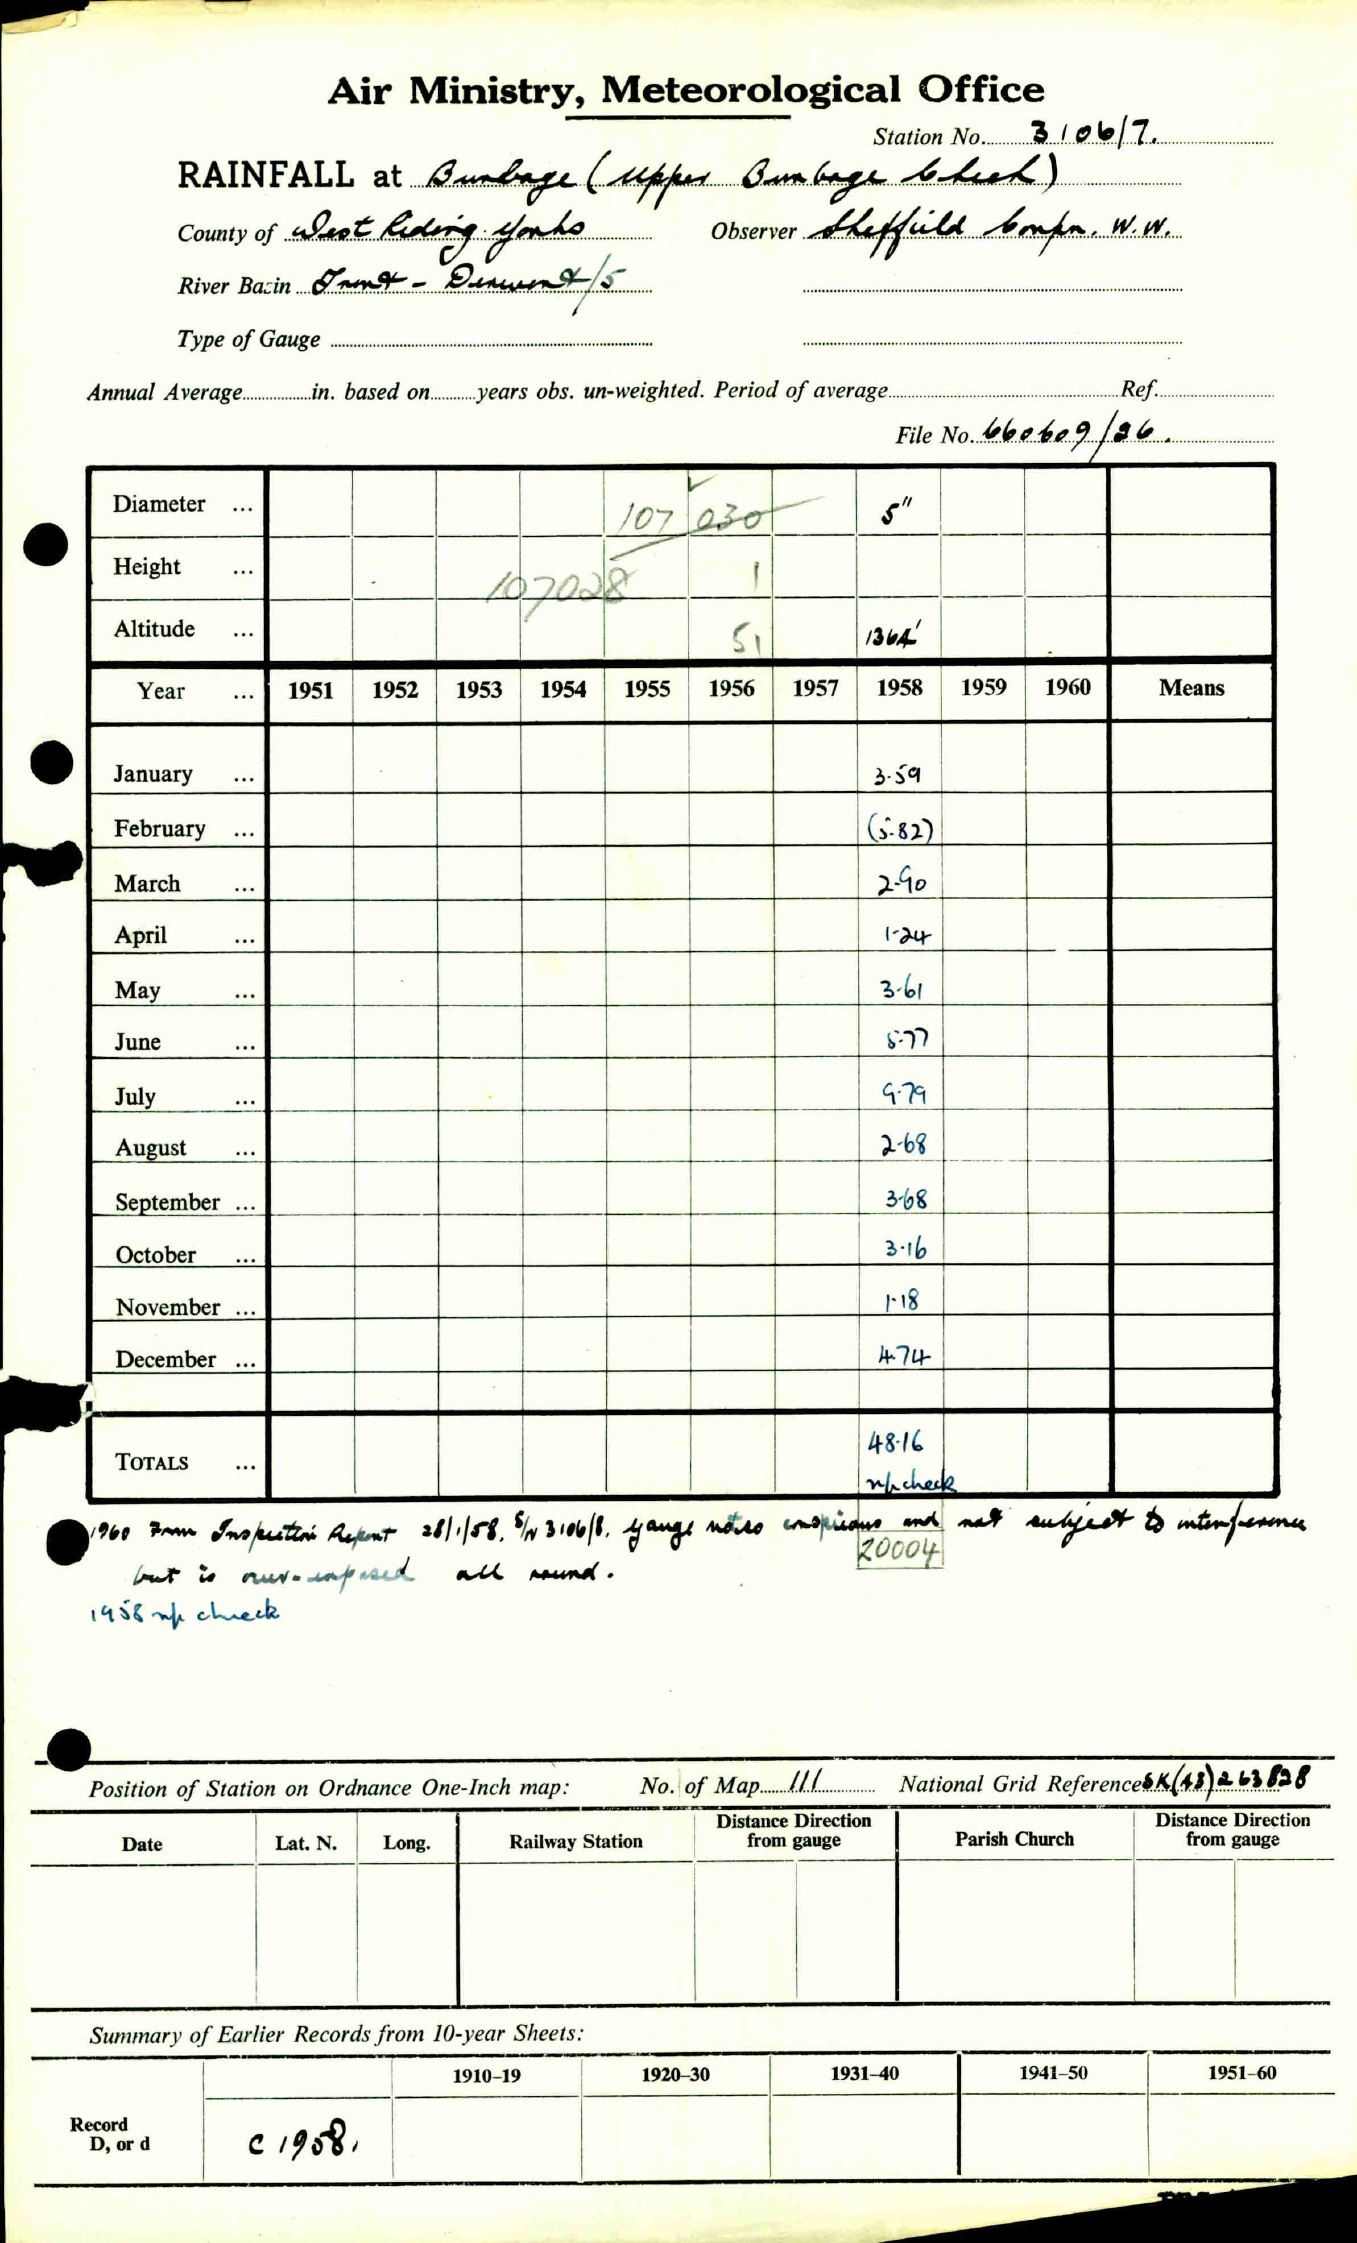 Air Ministry, Meteorological Office
Station No. 3106/7.
RAINFALL at Burbage (Upper Burbage Check)
County of West Riding Yorks Observer Sheffield Corpn. W.W.
River Basin Trent - Derwent/5
Type of Gauge
Annual Average in. based on years obs. un-weighted. Period of average Ref.
File No. 660609/26.
Diameter ... 107 030 5"
Height ... 107028 1
Altitude ... 51 1364'
Year ... 1951 1952 1953 1954 1955 1956 1957 1958 1959 1960 Means
January ... 3.59
February ... (5.82)
March ... 2.90
April ... 1.24
May ... 3.61
June ... 5.77
July ... 9.79
August ... 2.68
September ... 3.68
October ... 3.16
November ... 1.18
December ... 4.74
TOTALS ... 48.16
np check
1960 From Inspection Report 28/1/58. S/N 3106/8. Gauge not so conspicuous and not subject to interference
20004
but is over-exposed all round.
1958 np check
Position of Station on Ordnance One-Inch map: No. of Map 111 National Grid Reference SK(43)263828
Date Lat. N. Long. Railway Station Distance Direction from gauge Parish Church Distance Direction from gauge
Summary of Earlier Records from 10-year Sheets:
1910–19 1920–30 1931–40 1941–50 1951–60
Record
D, or d C 1958.